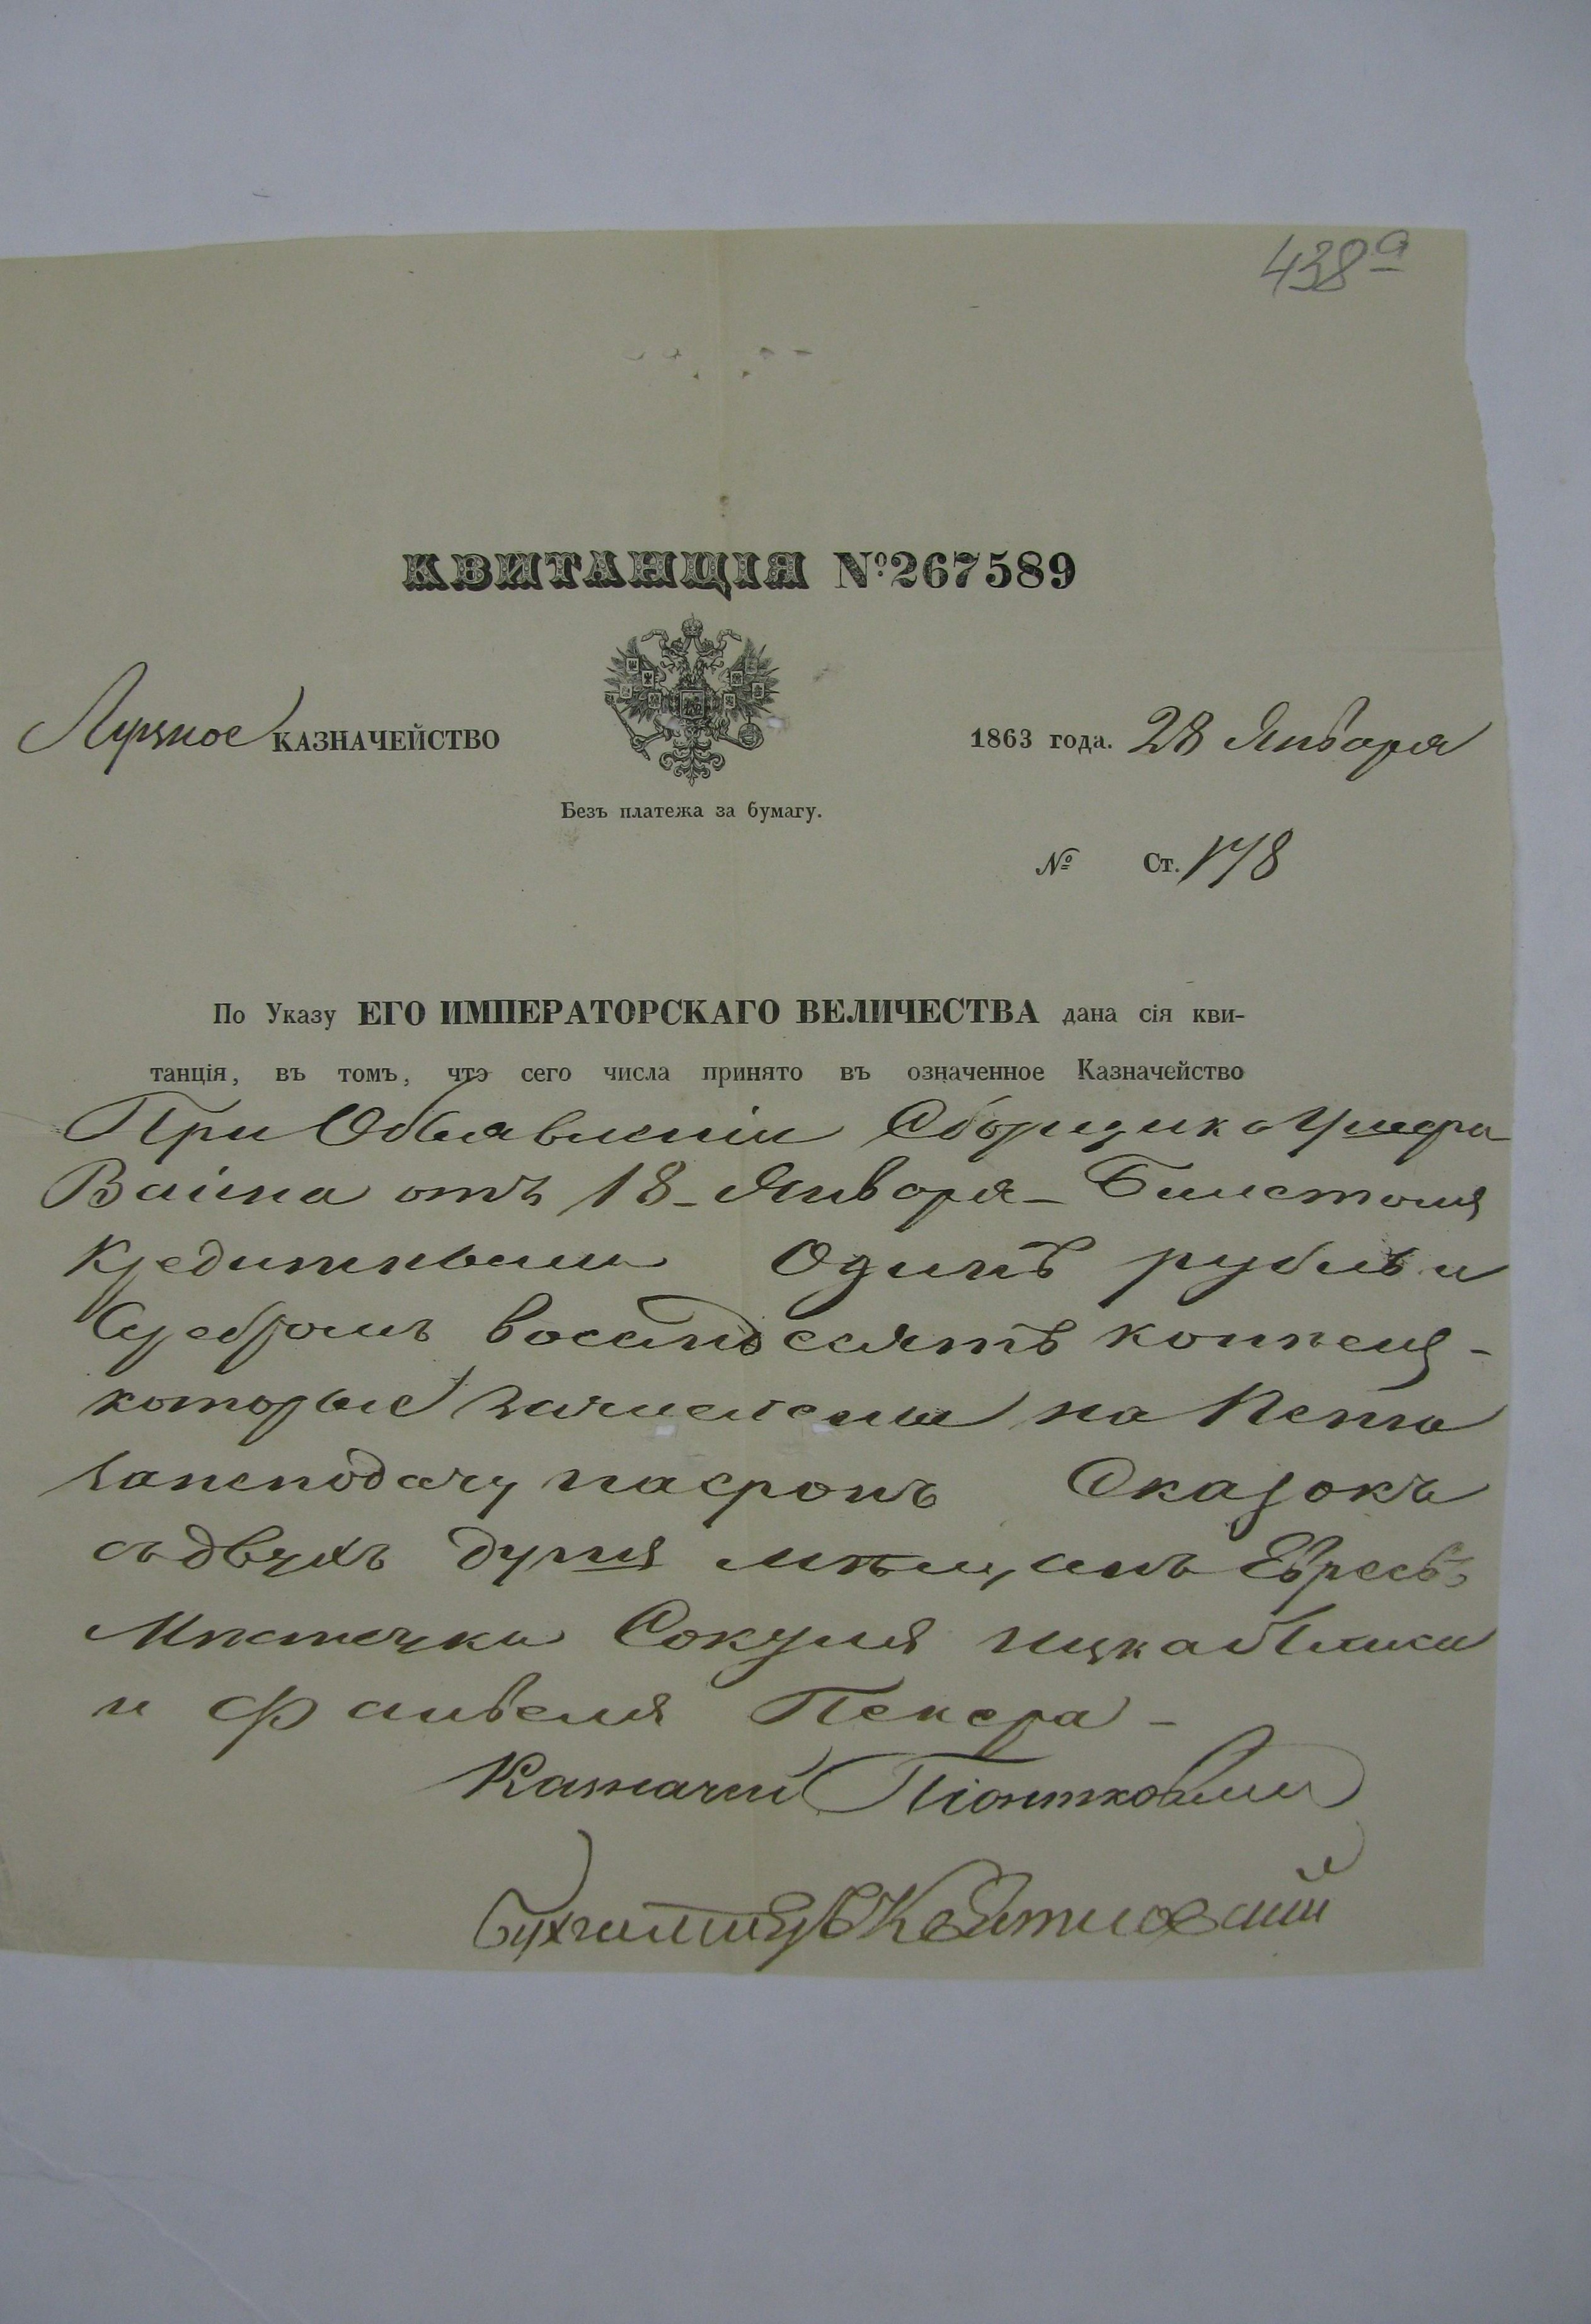 438а
КВИТАНЦІЯ №267589
Луцкое КАЗНАЧЕЙСТВО
1863 года. 28 Января
Безъ платежа за бумагу.
№ Ст. 178
По Указу ЕГО ИМПЕРАТОРСКАГО ВЕЛИЧЕСТВА дана сія кви-
танція, въ томъ, что сего числа принято въ означенное Казначейство
При Объявленіи Сборщика
Вайна отъ 18 Января - Билетами
Кредитными Одинъ рубль и
Серебромъ восемдесятъ копѣекъ -
которые зачислены на
на срокъ Сказокъ
съ двухъ душъ мѣщанъ Евреевъ
Мѣстечка Сокуля
и Файвеля Пекера -
Казначей Піонтковскій
Бухгалтеръ